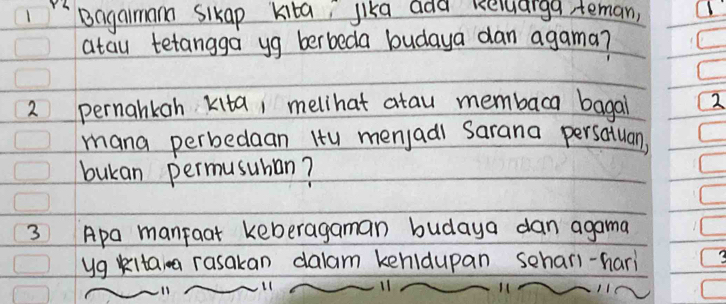 1 Bagaimana sikap kita, jika ada keluarga, teman,
atau tetangga yg berbeda budaya dan agama?
2 pernahkah kita, melihat atau membaca bagai
mana perbedaan itu menjadi sarana persatuan,
bukan permusuhan?
3 Apa manfaat keberagaman budaya dan agama
yg kita rasakan dalam kehidupan sehari-hari
1
2
3